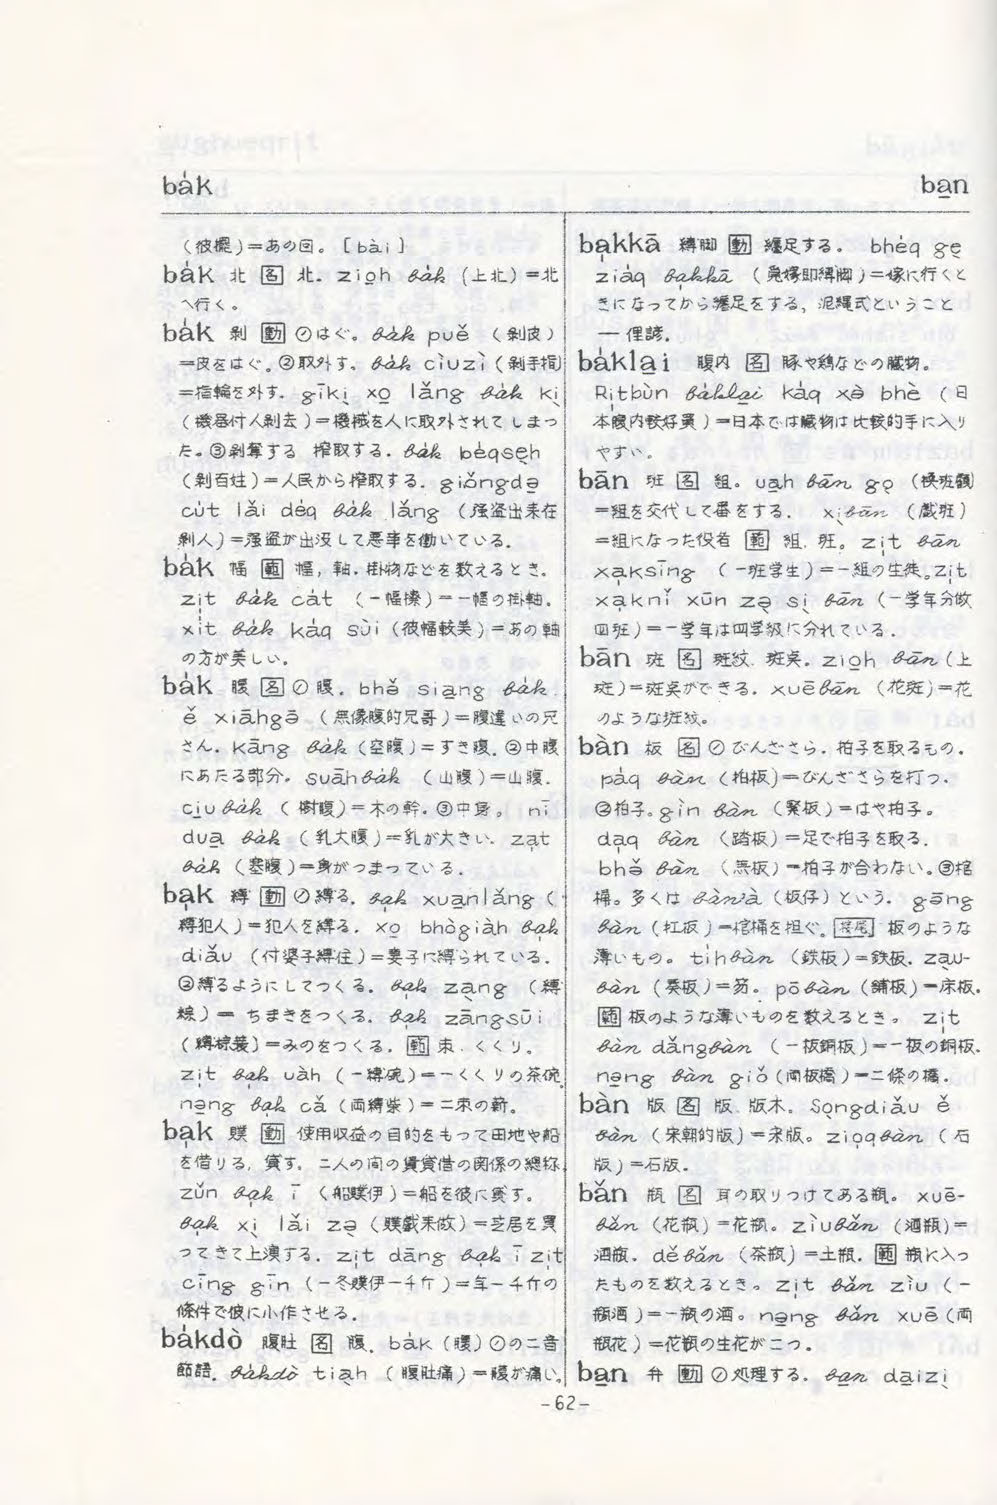 bák
ban̲
(彼擺)=あの回。[bài]
bák 北 [名] 北. zio̲h bák (上北) =北
へ行く。
bák 剝 [動] ①はぐ。bák puě (剝皮)
=皮をはぐ。②取外す。bák cìuzì (剝手指)
=指輪を外す. gīkị xo̲ lǎng bák kị
(機器付人剝去)=機械を人に取外されてしまっ
た。③剝奪する 搾取する. bák béqsẹh
(剝百姓)=人民から搾取する. giǒngdə̲
cút lǎi déq bák lǎng (强盗出来在
剝人)=强盗が出没して悪事を働いている.
bák 幅 [範] 幅, 軸. 掛物などを数えるとき。
zịt bák cát (一幅擦)=一幅の掛軸.
xít bák káq sùi (彼幅較美)=あの軸
の方が美しい。
bák 腹 [名] ① 腹. bhə̌ siang bák
ě xiāhgə̄ (無像腹的兄哥)=腹違いの兄
さん. kāng bák (空腹)=すき腹. ②中腹
にあたる部分。suāhbák (山腹)=山腹.
ciubák (樹腹)=木の幹. ③中身。nī
dua̲ bák (乳大腹)=乳が大きい. zạt
bák (塞腹)=身がつまっている.
bạk 縛 [動] ①縛る. bạk xua̲nlǎng (
縛犯人)=犯人を縛る. xo̲ bhògiàh bạk
diǎu (付婆子縛住)=妻子に縛られている.
②縛るようにしてつくる. bạk zạng (縛
糉)= ちまきをつくる. bạk zāngsūi
(縛棕蓑)=みのをつくる. [範] 束. くくり。
zịt bạk uàh (一縛碗)=一くくりの茶碗.
nə̲ng bạk cǎ (両縛柴)=二束の薪。
bạk 贌 [動] 使用収益の目的をもって田地や船
を借りる, 貸す。二人の間の賃貸借の関係の總称.
zǔn bạk ī (船贌伊)=船を彼に貸す。
bạk xị lǎi zə̣ (贌戯来做)=芝居を買
ってきて上演する. zịt dāng bạk ī zịt
cīng gīn (一冬贌伊一千斤)=年一千斤の
條件で彼に小作させる.
bákdò 腹肚 [名] 腹. bák (腹) ①の二音
節語. bákdò tiạh (腹肚痛)=腹が痛い.
bạkkā 縛脚 [動] 纏足する。 bhéq gẹ
ziáq bạkkā (覓嫁即縛脚)=嫁に行くと
きになってから纏足をする, 泥縄式ということ
—俚諺.
báklại 腹内 [名] 豚や鶏などの臓物。
Rịtbùn báklại káq xə̀ bhè (日
本腹内較好買)=日本では臓物は比較的手に入り
やすい。
bān 班 [名] 組。uạh bān gọ (换班顧)
=組を交代して番をする. xịbān (戯班)
=組になった役者 [範] 組. 班。zịt bān
xạksīng (一班学生)=一組の生徒。zịt
xạknǐ xūn zə̣ sị bān (一学年分做
四班)=一学年は四学級に分れている.
bān 斑 [名] 斑紋. 斑点. zio̲h bān (上
斑)=斑点ができる. xuēbān (花斑)=花
のような斑紋。
bàn 板 [名] ① びんざさら. 拍子を取るもの.
páq bàn (拍板)=びんざさらを打つ.
②拍子。gìn bàn (緊板)=はや拍子。
dạq bàn (踏板)=足で拍子を取る.
bhə̌ bàn (無板)=拍子が合わない。③棺
桶。多くは bànà (板仔) という. gāng
bàn (扛板)=棺桶を担ぐ. [接尾] 板のような
薄いもの。tíhbàn (鉄板)=鉄板. zạu-
bàn (奏板)=笏。pōbàn (舖板)=床板.
[範] 板のような薄いものを数えるとき。zịt
bàn dǎngbàn (一板銅板)=一板の銅板.
nə̲ng bàn giǒ (両板橋)=二條の橋.
bàn 版 [名] 版. 版木. Sọngdiǎu ě
bàn (宋朝的版)=宋版. ziọqbàn (石
版)=石版.
bǎn 瓶 [名] 耳の取りつけてある瓶。 xuē-
bǎn (花瓶)=花瓶。zìubǎn (酒瓶)=
酒瓶. děbǎn (茶瓶)=土瓶. [範] 瓶に入っ
たものを数えるとき。zịt bǎn zìu (一
瓶酒)=一瓶の酒。nə̲ng bǎn xuē (両
瓶花)=花瓶の生花が二つ.
ba̲n 弁 [動] ①処理する. ba̲n da̲izị
-62-